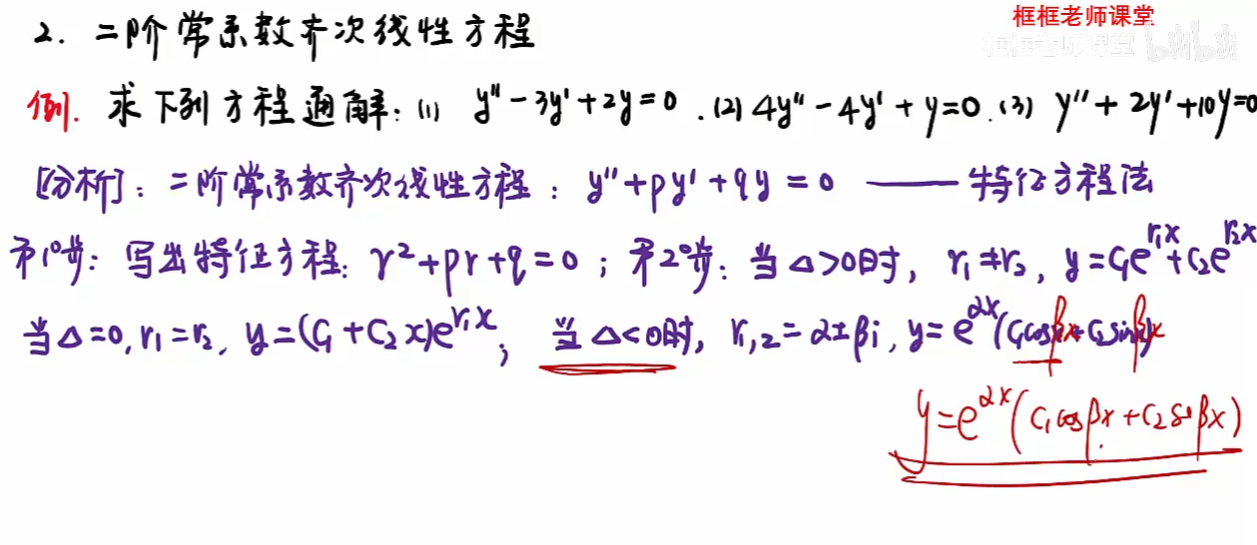 框框老师课堂
框框老师课堂 bilibili
2. 二阶常系数齐次线性方程
例. 求下列方程通解: (1) y″-3y′+2y=0 . (2) 4y″-4y′+y=0. (3) y″+2y′+10y=0
[分析]: 二阶常系数齐次线性方程: y″+py′+qy=0 —— 特征方程法
第1°步: 写出特征方程: r²+pr+q=0 ; 第2°步: 当Δ>0时, r₁≠r₂, y=C₁e^{r₁x}+C₂e^{r₂x}
当Δ=0, r₁=r₂, y=(C₁+C₂x)e^{r₁x}; 当Δ<0时, r₁,₂=α±βi, y=e^{αx}(C₁cosβx+C₂sinβx)
y=e^{αx}(C₁cosβx+C₂sinβx)